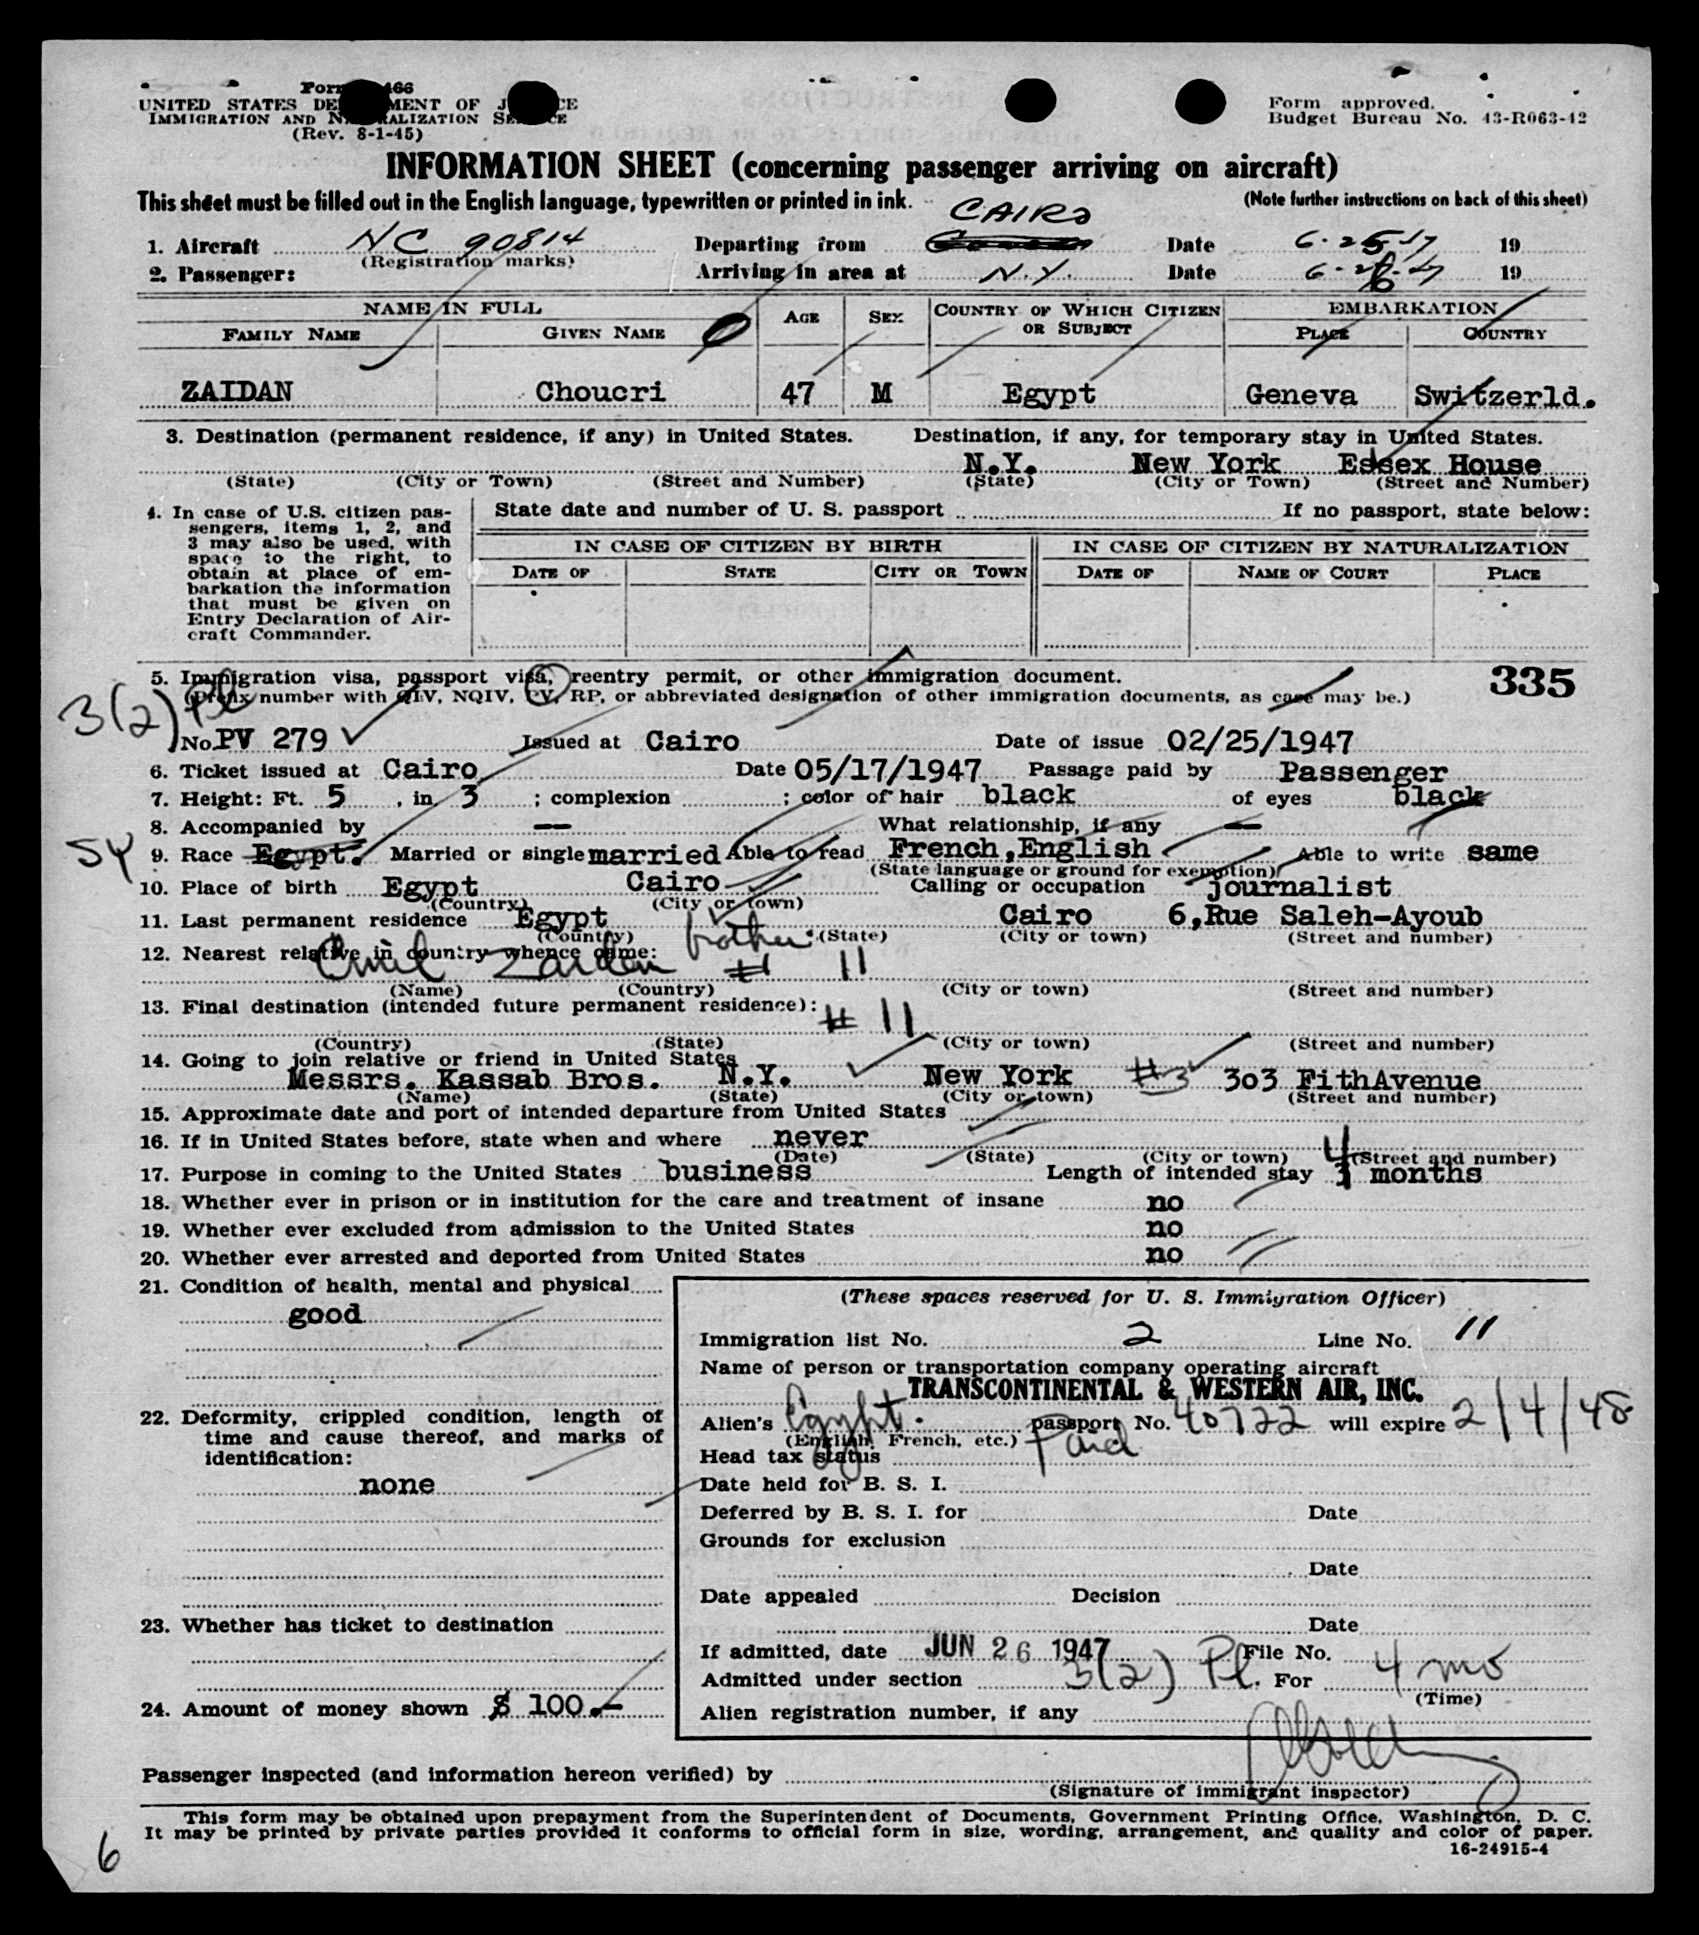 Form 466
UNITED STATES DEPARTMENT OF JUSTICE
IMMIGRATION AND NATURALIZATION SERVICE
(Rev. 8-1-45)
Form approved.
Budget Bureau No. 43-R063-42
INFORMATION SHEET (concerning passenger arriving on aircraft)
This sheet must be filled out in the English language, typewritten or printed in ink. (Note further instructions on back of this sheet)
CAIRO
1. Aircraft NC 90814 Departing from Date 6-25-47 19
(Registration marks)
2. Passenger: Arriving in area at N.Y. Date 6-26-47 19
NAME IN FULL AGE SEX COUNTRY OF WHICH CITIZEN OR SUBJECT EMBARKATION
FAMILY NAME GIVEN NAME PLACE COUNTRY
ZAIDAN Choucri 47 M Egypt Geneva Switzerld.
3. Destination (permanent residence, if any) in United States. Destination, if any, for temporary stay in United States.
N.Y. New York Essex House
(State) (City or Town) (Street and Number) (State) (City or Town) (Street and Number)
4. In case of U.S. citizen passengers, items 1, 2, and 3 may also be used, with space to the right, to obtain at place of embarkation the information that must be given on Entry Declaration of Aircraft Commander.
State date and number of U. S. passport If no passport, state below:
IN CASE OF CITIZEN BY BIRTH IN CASE OF CITIZEN BY NATURALIZATION
DATE OF STATE CITY OR TOWN DATE OF NAME OF COURT PLACE
5. Immigration visa, passport visa, reentry permit, or other immigration document. 335
(Prefix number with QIV, NQIV, PV, RP, or abbreviated designation of other immigration documents, as case may be.)
3(2) Pl
No. PV 279 Issued at Cairo Date of issue 02/25/1947
6. Ticket issued at Cairo Date 05/17/1947 Passage paid by Passenger
7. Height: Ft. 5, in. 3; complexion ; color of hair black of eyes black
8. Accompanied by -- What relationship, if any --
54
9. Race Egypt. Married or single married Able to read French, English Able to write same
(State language or ground for exemption)
10. Place of birth Egypt Cairo Calling or occupation journalist
(Country) (City or town)
11. Last permanent residence Egypt Cairo 6,Rue Saleh-Ayoub
(Country) (State) (City or town) (Street and number)
12. Nearest relative in country whence came: brother
Emil Zaidan # 11
(Name) (Country) (City or town) (Street and number)
13. Final destination (intended future permanent residence): # 11
(Country) (State) (City or town) (Street and number)
14. Going to join relative or friend in United States
Messrs. Kassab Bros. N.Y. New York #3 303 FithAvenue
(Name) (State) (City or town) (Street and number)
15. Approximate date and port of intended departure from United States
16. If in United States before, state when and where never
(Date) (State) (City or town) (Street and number)
17. Purpose in coming to the United States business Length of intended stay 4 months
18. Whether ever in prison or in institution for the care and treatment of insane no
19. Whether ever excluded from admission to the United States no
20. Whether ever arrested and deported from United States no
21. Condition of health, mental and physical
good
22. Deformity, crippled condition, length of time and cause thereof, and marks of identification:
none
23. Whether has ticket to destination
24. Amount of money shown $ 100.-
(These spaces reserved for U. S. Immigration Officer)
Immigration list No. 2 Line No. 11
Name of person or transportation company operating aircraft
TRANSCONTINENTAL & WESTERN AIR, INC.
Alien's Egypt. passport No. 40722 will expire 2/4/48
(English, French, etc.)
Head tax status Paid
Date held for B. S. I.
Deferred by B. S. I. for Date
Grounds for exclusion
Date
Date appealed Decision
Date
If admitted, date JUN 26 1947 File No.
Admitted under section 3(2) Pl. For 4 mo
(Time)
Alien registration number, if any
Passenger inspected (and information hereon verified) by
(Signature of immigrant inspector)
This form may be obtained upon prepayment from the Superintendent of Documents, Government Printing Office, Washington, D. C.
It may be printed by private parties provided it conforms to official form in size, wording, arrangement, and quality and color of paper.
16-24915-4
6